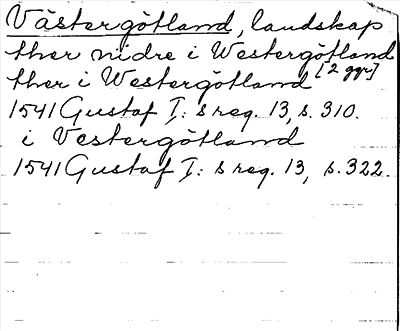 Västergötland, landskap
ther nidre i Westergötland
ther i Westergötland [2 ggr]
1541 Gustaf I: s reg. 13, s. 310.
i Vestergötland
1541 Gustaf I: s reg. 13, s. 322.